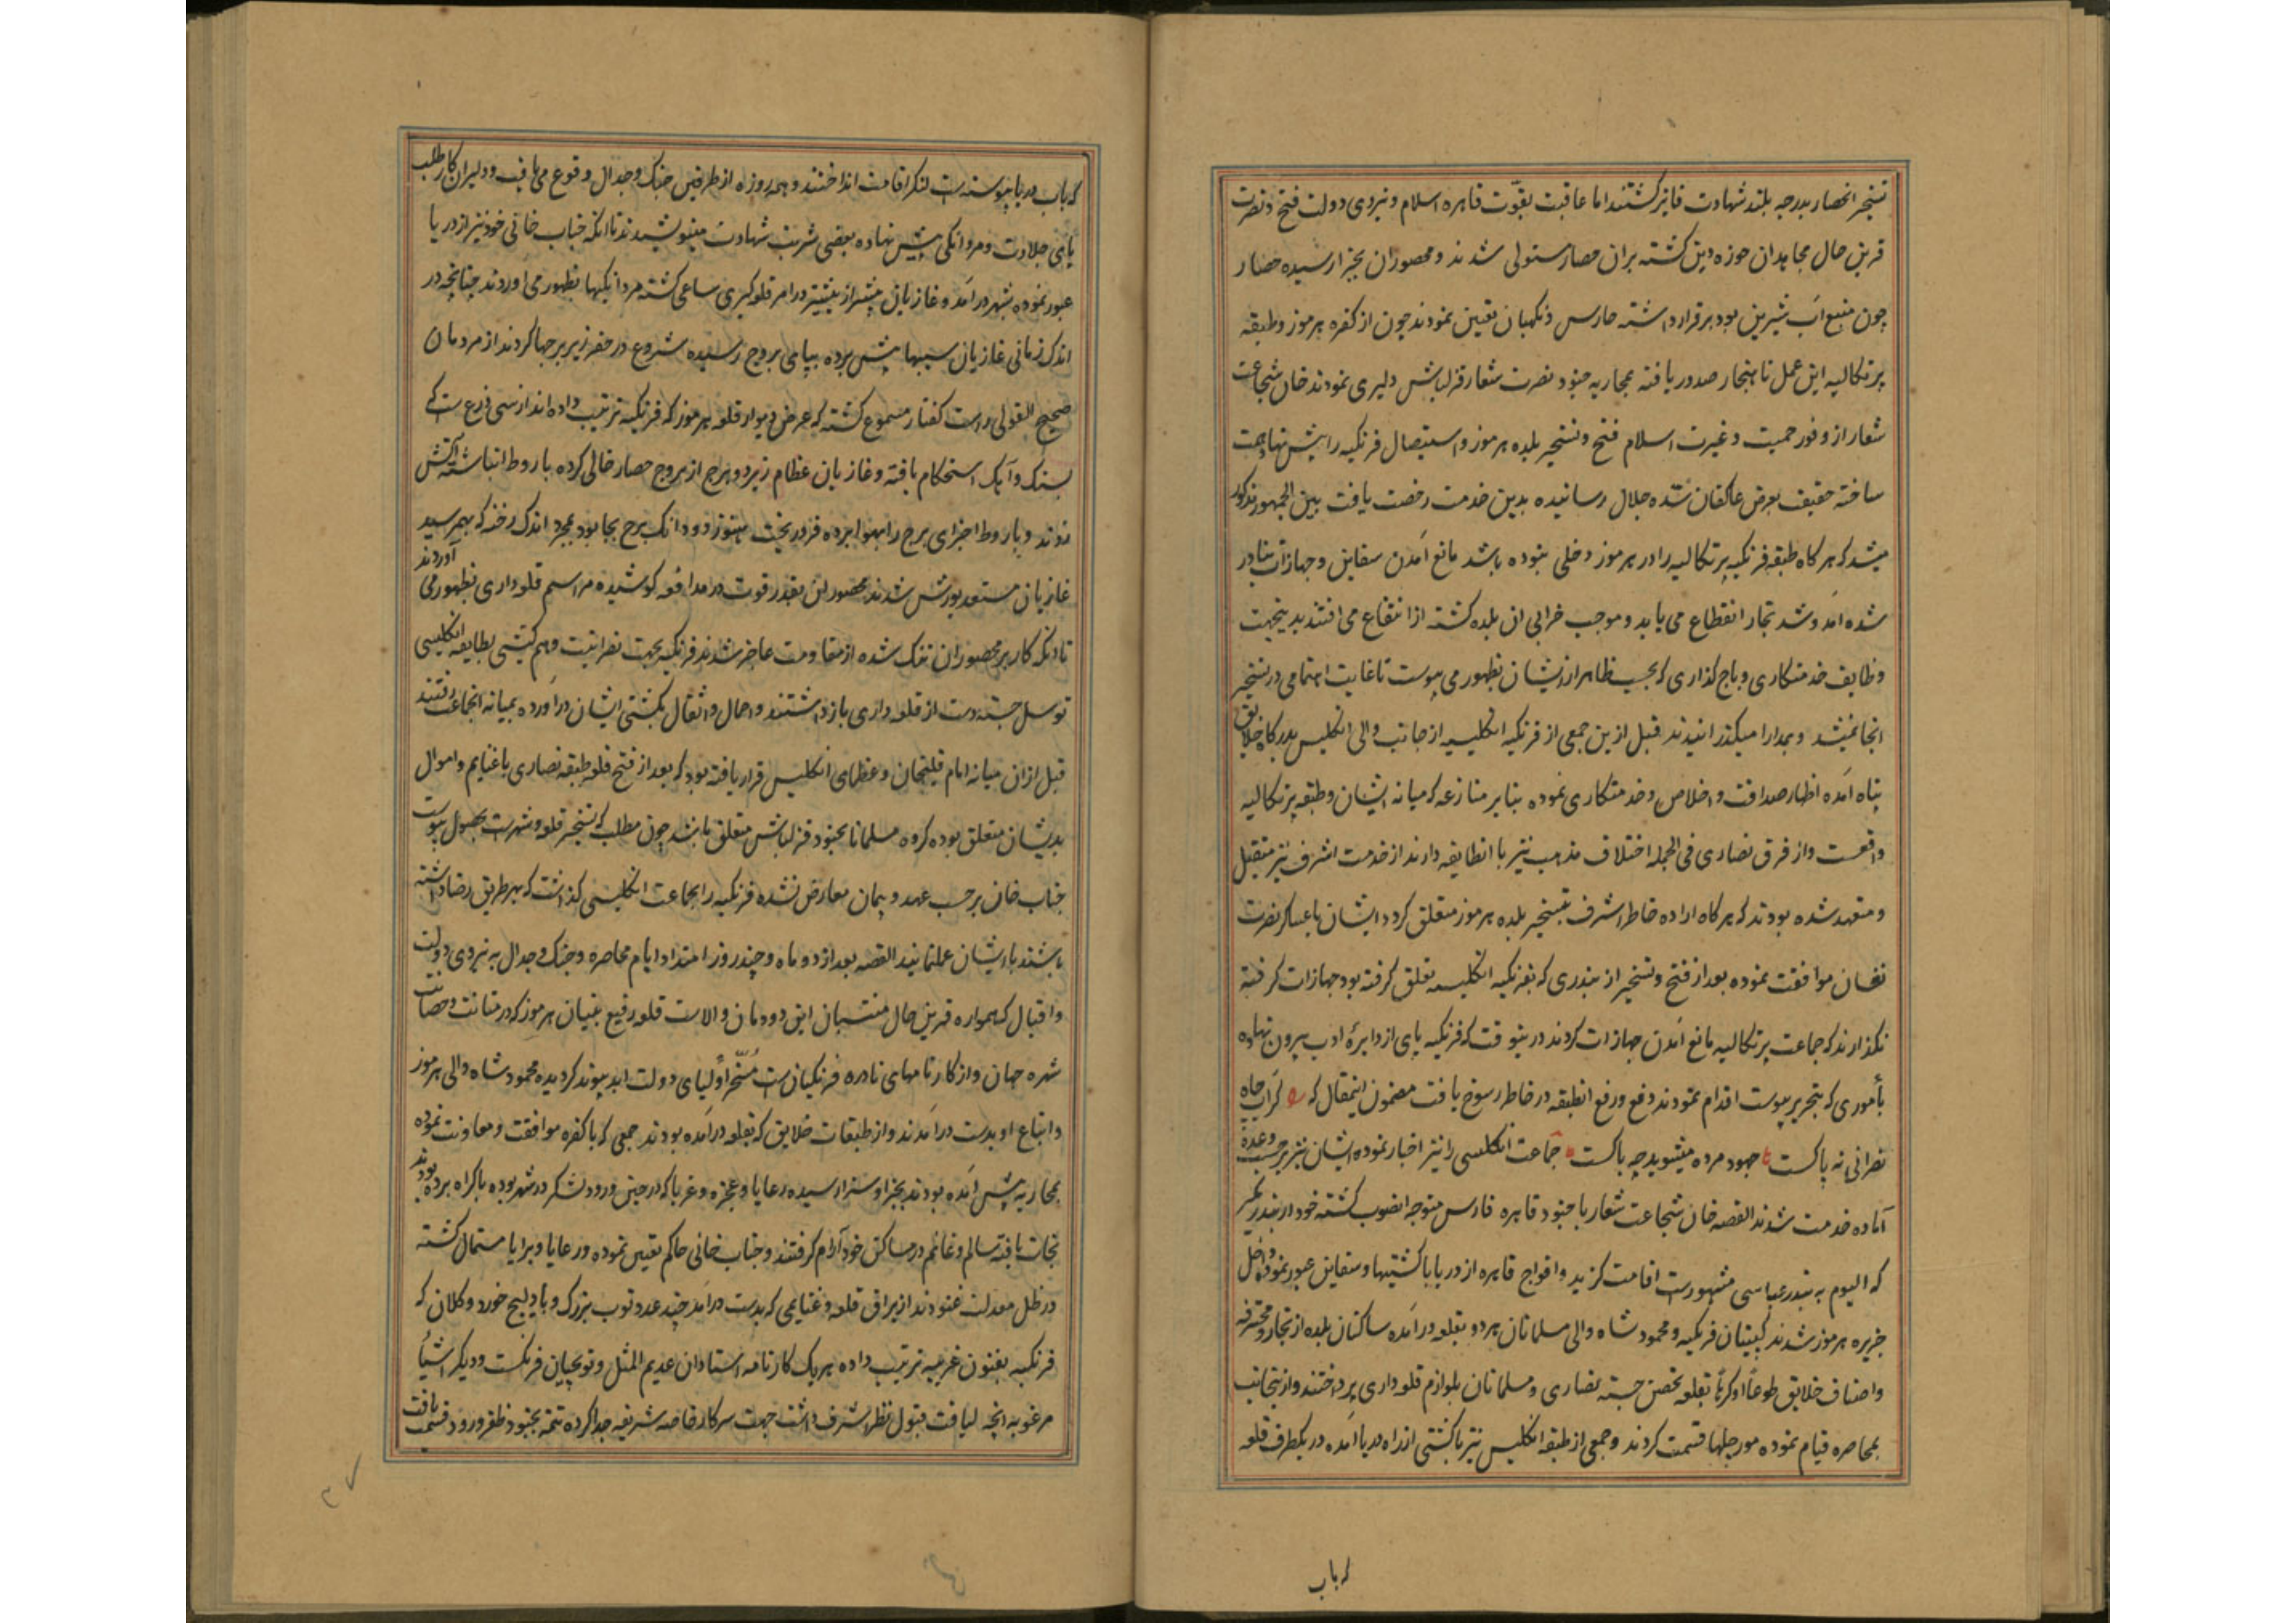 تسخیر انحصار بدرجه بلند شهادت فایز کشتند اما عاقبت بقوّت قاهره اسلام و نیروی دولت فتح و نصرت
قرین حال مجاهدان حوزه دین کشته بران حصار مستولی شدند و محصوران بجزا رسیده حصار
چون منبع آب شیرین بود برقرار داشته حارس و نکهبان تعین نمودند چون از کفره هرموز و طبقه
پرتکالیه این عمل ناهنجار صدور یافته بمحاربه جنود نصرت شعار قزلباش دلیری نمودند خان شجاعت
شعار از وفور حمیت و غیرت اسلام فتح و تسخیر بلده هرموز و استیصال فرنکیه را پیش نهاد همت
ساخته حقیقت بعرض عاکفان سّده جلال رسانیده بدین خدمت رخصت یافت بین الجمهور مذکور
میشد که هر کاه طبقه فرنکیه پرتکالیه را در هرموز دخلی نبوده باشد مانع آمدن سفاین و جهازات بنادر
شده آمد و شد تجار انقطاع می یابد و موجب خرابی ان بلده کشته از انتفاع می افتند بدینجهت
وظایف خدمتکاری و باج کذاری که بحسب ظاهر ازیشان بظهور می پیوست تا غایت اهتمامی در تسخیر
انجا نمیشد و بمدارا میکذرانیدند قبل ازین جمعی از فرنکیه انکلیسیه از جانب والی انکلیس بدرکاه خلایق
پناه آمده اظهار صداقت و اخلاص و خدمتکاری نموده بنابر منازعه که میانه ایشان و طبقه پرتکالیه
واقعست و از فرق نصاری فی الجمله اختلاف مذهب نیز با انطایفه دارند از خدمت اشرف نیز متقبل
و متعهد شده بودند که هر کاه اراده خاطر اشرف بتسخیر بلده هرموز متعلق کردد ایشان با عساکر نصرت
نشان موافقت نموده بعد از فتح و تسخیر از بندری که بفرنکیه انکلیسیه تعلق کرفته بود جهازات کرفته
نکذارند که جماعت پرتکالیه مانع آمدن جهازات کردند درینوقت که فرنکیه پای از دایرهٔ ادب بیرون نهاده
بأموری که بتحریر پیوست اقدام نمودند دفع و رفع انطبقه در خاطر رسوخ یافت مضمون اینمقال که کر آب چاه
نصرانی نه پاکست جهود مرده میشوید چه باکست جماعت انکلیسی را نیز اخبار نموده ایشان نیز بر حسب وعده
آماده خدمت شدند القصه خان شجاعت شعار با جنود قاهره فارس متوجه انصوب کشته خود در بندر
که الیوم به بندر عباسی مشهورست اقامت کزید و افواج قاهره از دریا با کشتیها و سفاین عبور نموده داخل
جزیره هرموز شدند کپیتان فرنکیه و محمود شاه والی مسلمانان هر دو بقلعه درآمده ساکنان بلده از تجار و محترفه
و اصناف خلایق طوعاً او کرهاً بقلعه تحصن جسته نصاری و مسلمانان بلوازم قلعه داری پرداختند و ازینجانب
بمحاصره قیام نموده مورچلها قسمت کردند و جمعی از طبقه انکلیس نیز با کشتی از راه دریا آمده در یکطرف قلعه
که باب
که باب دریا پیوسته است لنکر اقامت انداختند و همه روزه از طرفین جنک و جدال وقوع می یافت و دلیران کار طلب
پای جلادت و مردانکی پیش نهاده بعضی شربت شهادت مینوشیدند تا انکه جناب خانی خود نیز از دریا
عبور نموده بشهر درآمد و غازیان پیشتر از پیشتر در امر قلعه کیری ساعی کشته مردانکیها بظهور می آوردند چنانچه در
اندک زمانی غازیان سیبها پیش برده بپای بروج رسیده شروع در حفر زیر برجها کردند از مردمان
صحیح القول راست کفتار مسموع کشته که عرض دیوار قلعه هرموز که فرنکیه ترتیب داده اند از سی ذرع است که
بسنک و آهک استحکام یافته و غازیان عظام زیر دو برج از بروج حصار خالی کرده باروط انباشته آتش
زدند و باروط اجزای برج را بهوا برده فرو ریخت هنوز دو دانک برج بجا بود بمجرد اندک رخنه که بهم رسید
غازیان مستعد یورش شدند محصوران بقدر قوت در مدافعه کوشیده مراسم قلعه داری بظهور می آوردند
تا انکه کار بر محصوران تنک شده از مقاومت عاجز شدند فرنکیه بجهت نصرانیت و هم کیشی بطایفه انکلیسی
توسل جسته دست از قلعه داری باز داشتند و احمال و اثقال بکشتی ایشان درآورده بمیانه انجماعت رفتند
قبل ازان میانه امام قلیخان و عظمای انکلیس قرار یافته بود که بعد از فتح قلعه طبقه نصاری با غنایم و اموال
بدیشان متعلق بوده کروه مسلمانان بجنود قزلباش متعلق باشد چون مطلب که تسخیر قلعه و شهرست بحصول پیوست
جناب خان بر حسب عهد و پیمان معارض نشده فرنکیه را بجماعت انکلیسی کذاشت که بهر طریق رضا داشته
باشند با ایشان عمل نمایند القصه بعد از دو ماه و چند روز امتداد ایام محاصره و جنک و جدال به نیروی دولت
و اقبال که همواره قرین حال منتسبان این دودمان والاست قلعه رفیع بنیان هرموز که در متانت و حصانت
شهره جهان و از کارنامهای نادره فرنکیان است مسخّر أولیای دولت ابد پیوند کردیده محمود شاه والی هرموز
و اتباع او بدست درآمدند و از طبقات خلایق که بقلعه درآمده بودند جمعی که با کفره موافقت و معاونت نموده
بمحاربه پیش آمده بودند بجزا و سزا رسیده رعایا و عجزه و غربا که در حین ورود لشکر در شهر بوده باکراه برده بودند
نجات یافته سالم و غانم در مساکن خود آرام کرفتند و جناب خانی حاکم تعیین نموده و رعایا و برایا مستمال کشته
در ظل معدلت غنودند از یراق قلعه و غنایمی که بدست درآمد چند عدد توب بزرک و بادلیج خورد و کلان که
فرنکیه بفنون غریبه ترتیب داده هر یک کارنامه استادان عدیم المثل و توبچیان فرنکست و دیکر اشیأ
مرغوبه انچه لیاقت قبول نظر اشرف داشت جهت سرکار خاصه شریفه جدا کرده تتمه بجنود ظفر ورود قسمت یافت
۲۷